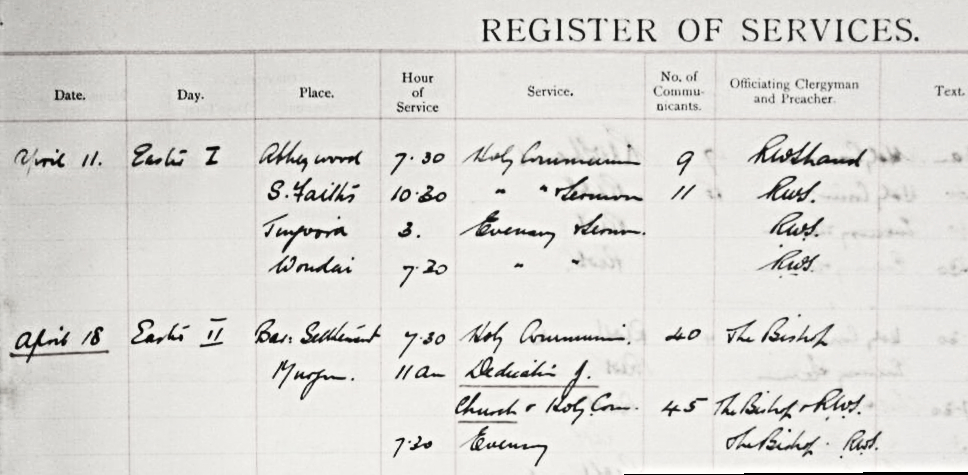 REGISTER OF SERVICES.
Date. Day. Place. Hour of Service Service. No. of Commu- nicants. Officiating Clergyman and Preacher. Text.
April 11. Easter I Abbeywood 7.30 Holy Communion 9 RWShand
S. Faiths 10.30 " " & Sermon 11 RWS.
3. Evensong & Sermon. RWS.
Wondai 7.30 " " RWS.
April 18 Easter II Bar: Settlement 7.30 Holy Communion. 40 The Bishop
Murgon. 11 am Dedication of
Church & Holy Com. 45 The Bishop & RWS.
7.30 Evensong The Bishop. RWS.